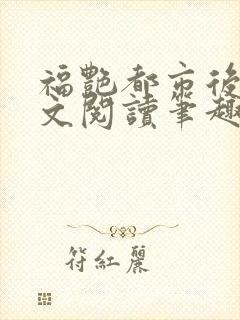 福艷都市後
文閱讀筆趣
符紅麗